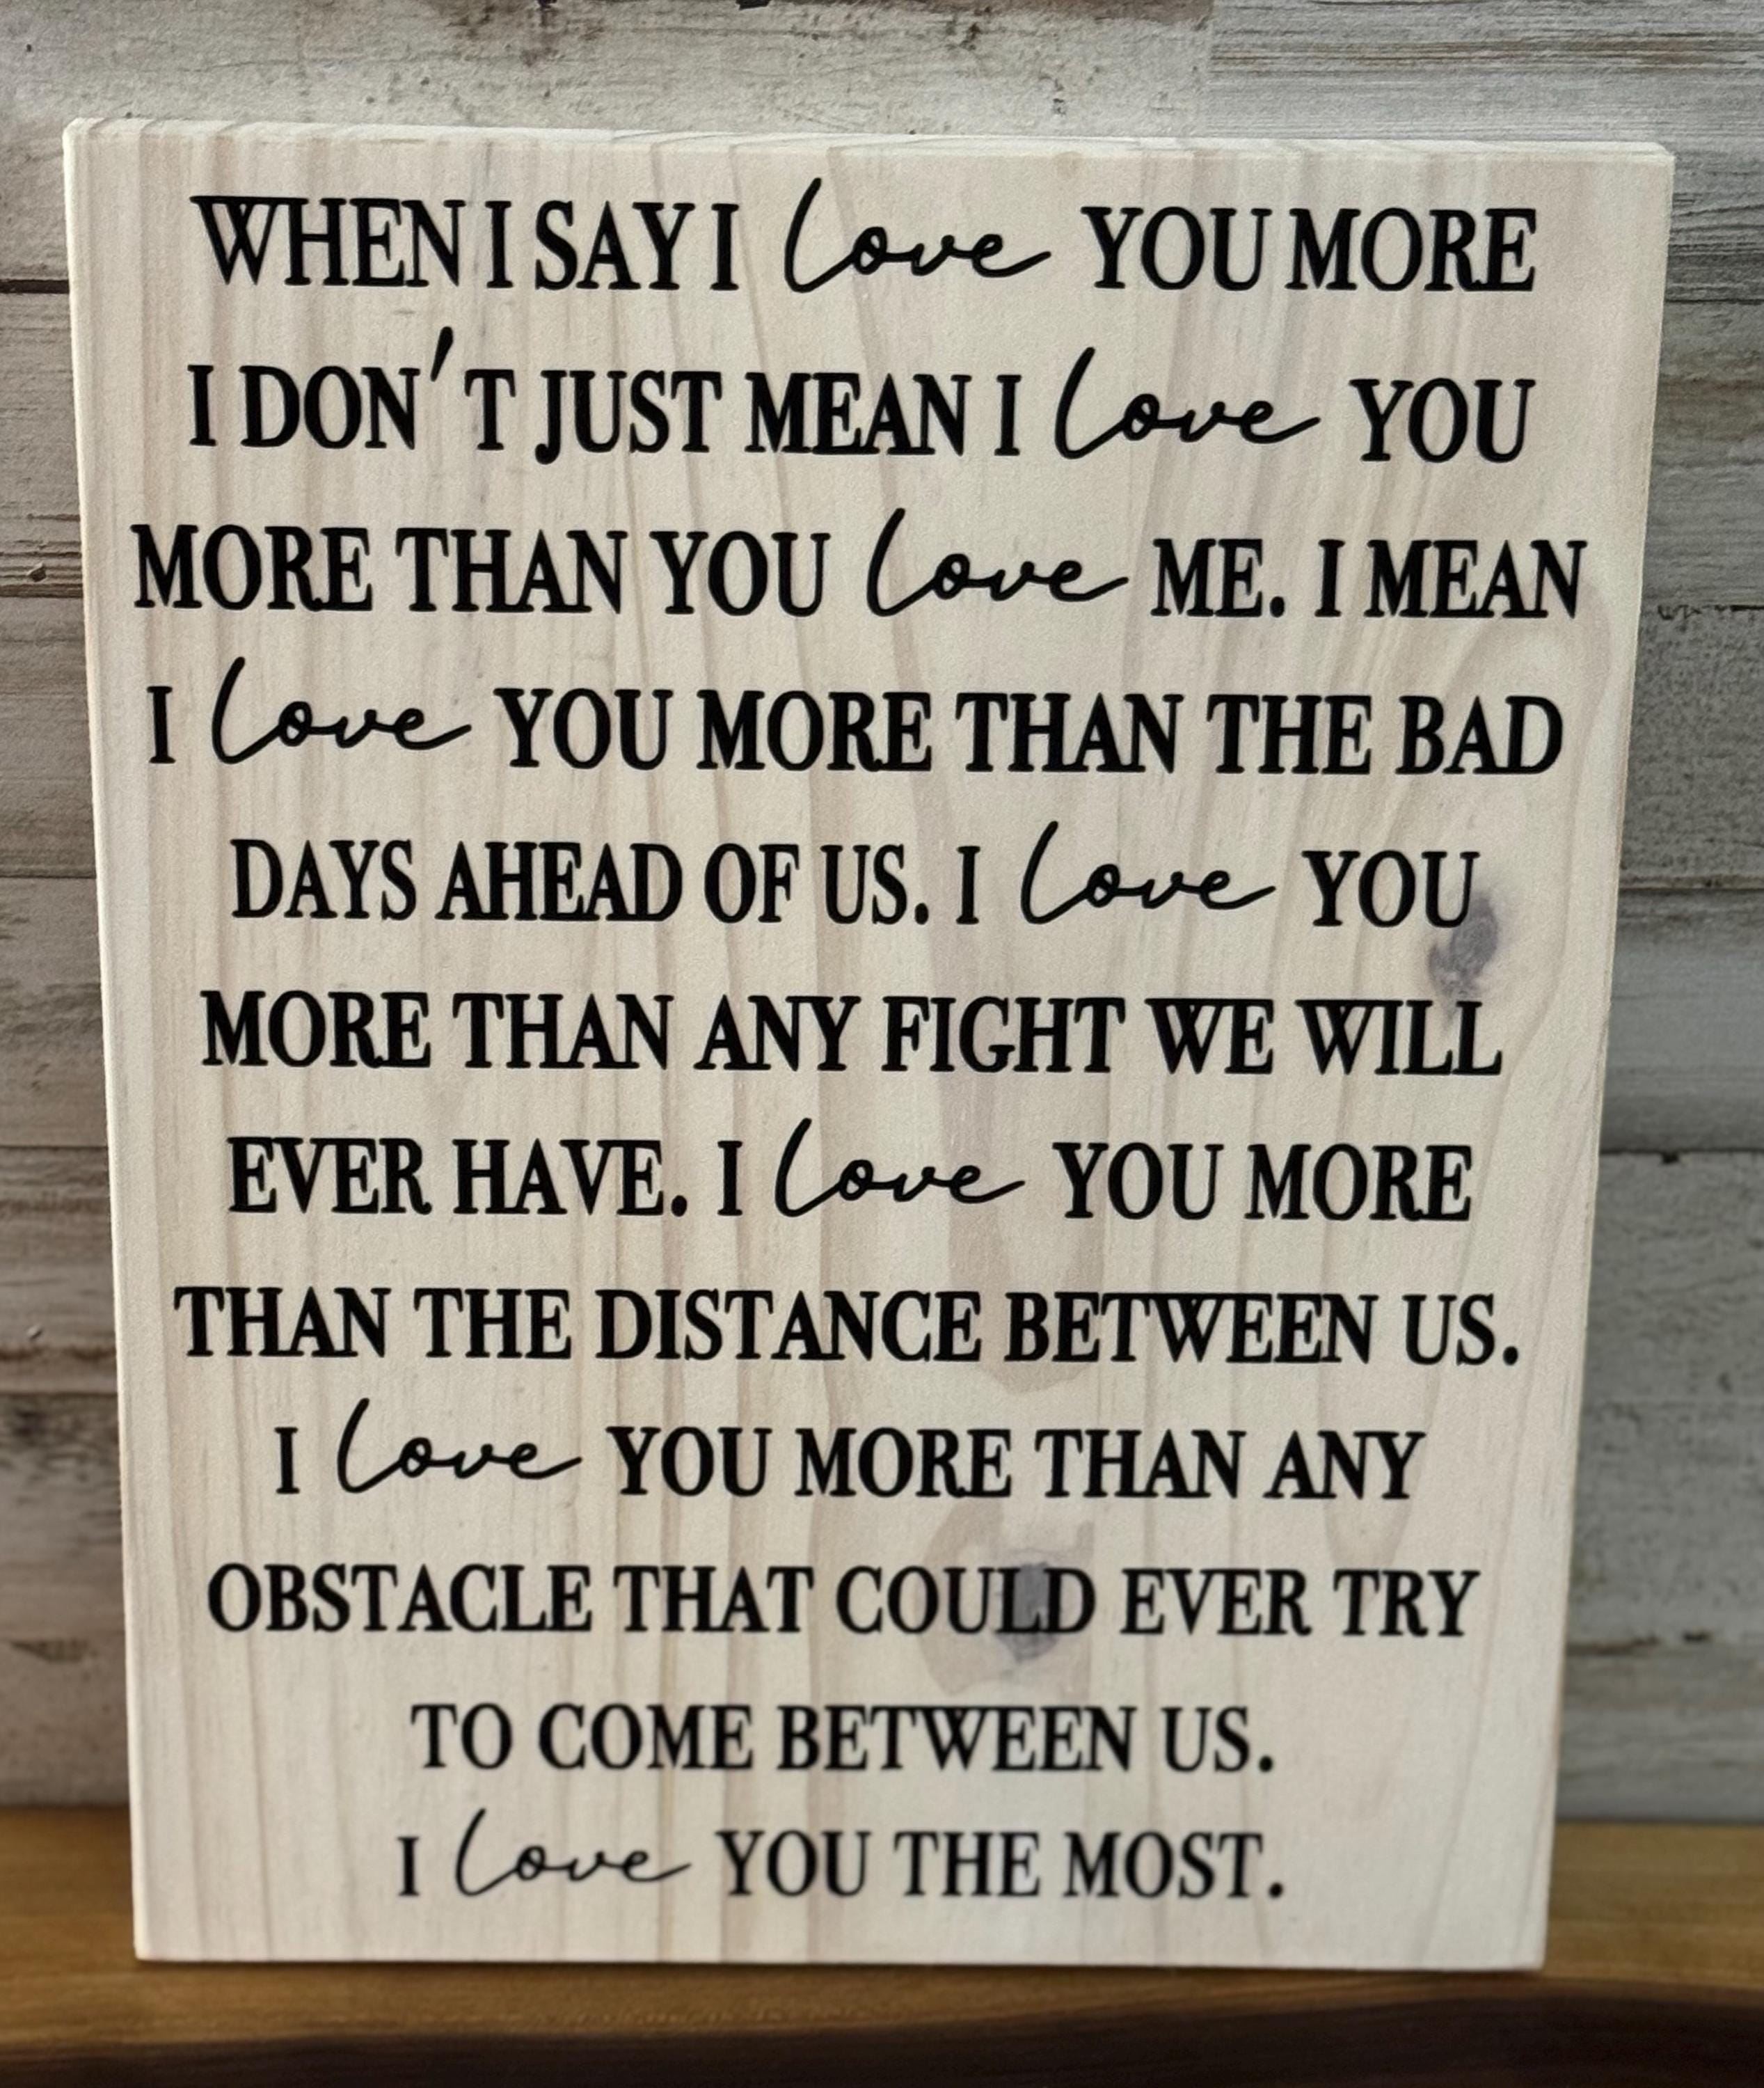 WHEN I SAY I love YOU MORE
I DON'T JUST MEAN I love YOU
MORE THAN YOU love ME. I MEAN
I love YOU MORE THAN THE BAD
DAYS AHEAD OF US. I love YOU
MORE THAN ANY FIGHT WE WILL
EVER HAVE. I love YOU MORE
THAN THE DISTANCE BETWEEN US.
I love YOU MORE THAN ANY
OBSTACLE THAT COULD EVER TRY
TO COME BETWEEN US.
I love YOU THE MOST.